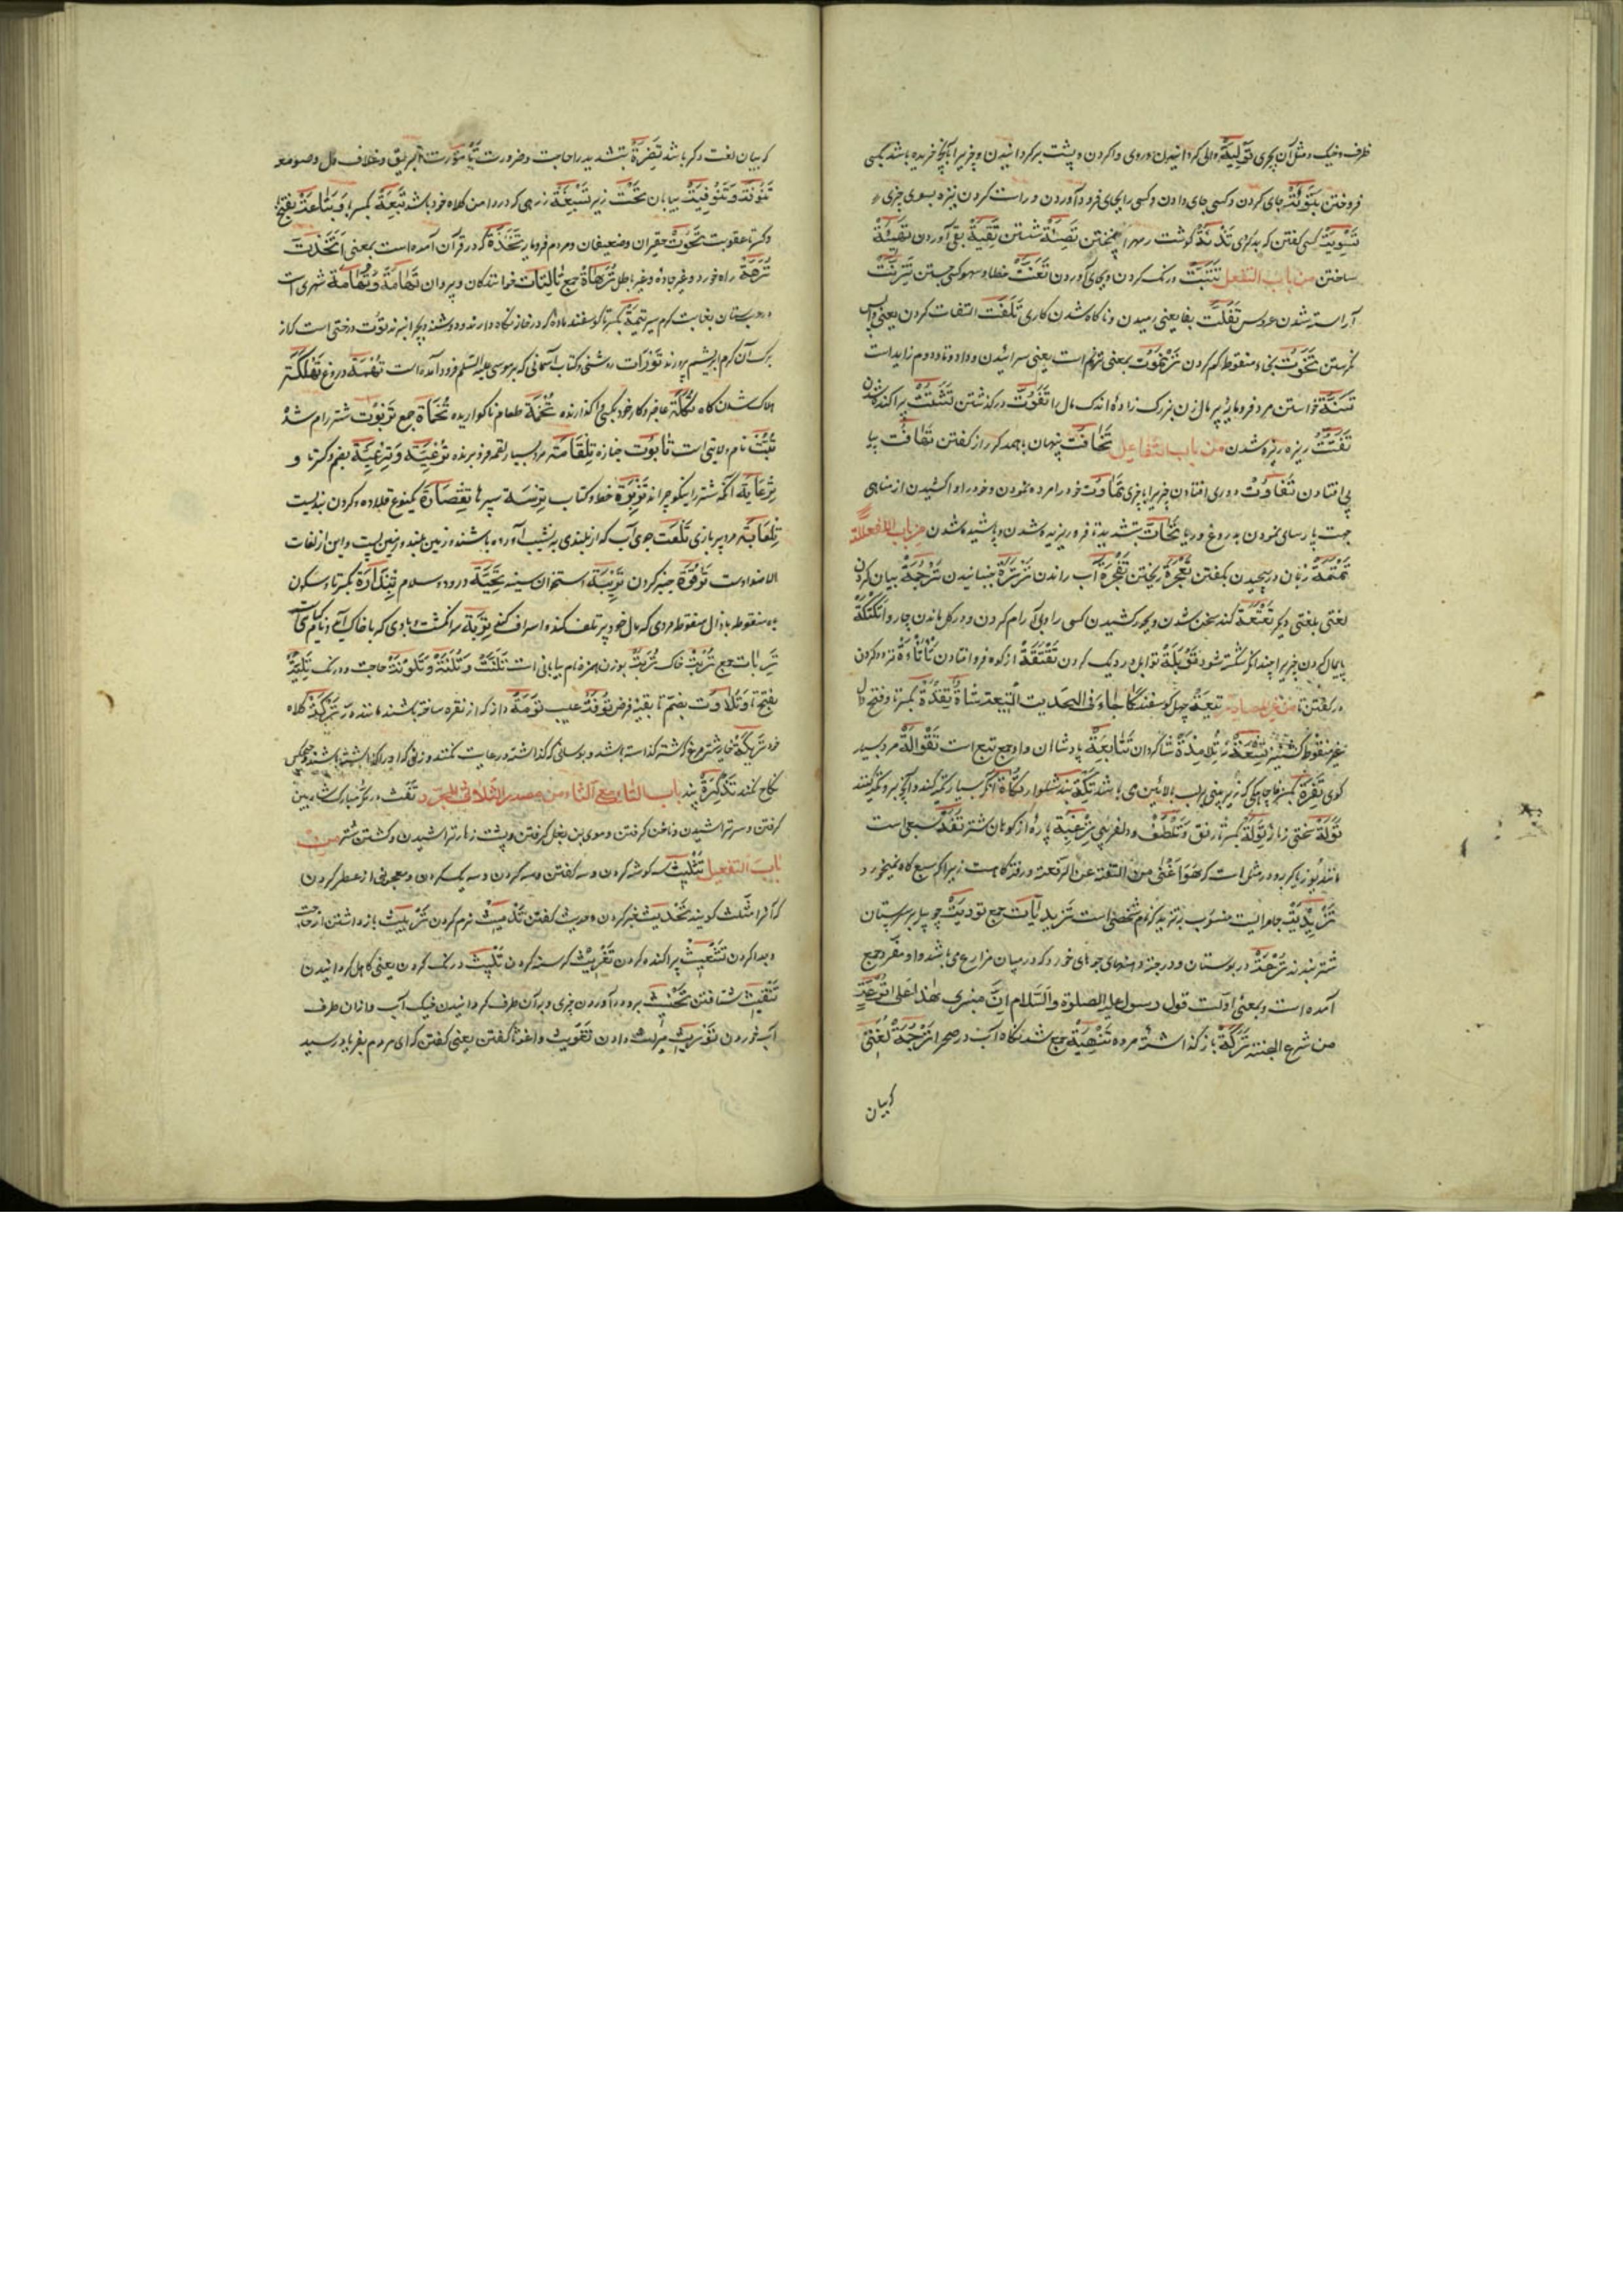 ظرف و خیک و مثل آن بچیزی تَوْلِیَةٌ والی کردانیدن و روی واکردن و پشت برکردانیدن و چیزیرا بآنچه خریده باشد بکسی
فروختن تَبْوِئَةٌ جای کردن و کسی جای دادن و کسی را بجای فرود آوردن و راست کردن نیزه بسوی چیزی
کسی کفتن که بد کردی کوشت شستن تَقِیَةٌ بقی آوردن تَهْیِئَةٌ
ساختن من باب التفعل تَثَبُّتْ درنک کردن و بجای آوردن تَعَنُّتْ خطا و سهو کسی جستن تَزَنُّتْ
آراسته شدن عروس تَفَلُّتْ بفا یعنی رمیدن و ناکاه شدن کاری تَلَفُّتْ التفات کردن یعنی واپس
نکرستن تَخَوُّتْ بخاء منقوطه کم کردن تَرَنْمُوتْ بمعنی ترنم است یعنی سرائیدن و واو و تا دوم زاید است
خواستن مرد فرومایه پر مال زن بزرک زاده اندک مال را تَفَوُّتْ درکذشتن تَشَتُّتْ پراکنده شدن
تَفَتُّتْ ریزه ریزه شدن من باب التفاعل تَخَافُتْ پنهان باهمدکر راز کفتن تَهَافُتْ پیا
پی افتادن تَفَاوُتْ دوری افتادن چیزیرا بچیزی تَمَاوُتْ خود را مرده نمودن و خود را واکشیدن از مناهی
جهت پارسای نمودن بدروغ و ریا تَحَاتّ بتشدید تا فرو ریزیده شدن و پاشیده شدن من باب الفعللة
تَمْتَمَةٌ زبان درپیچیدن بکفتن ریختن آب راندن تَرْتَرَةٌ جنبانیدن تَرْجَمَةٌ بیان کردن
لغتی بلغتی دیکر تَعْتَعَةٌ کند سخن شدن و بجبر کشیدن کسی را و بی آرام کردن و در کل ماندن چاروا تَکْتَکَةٌ
پایمال کردن چیزیرا چندانکه شکسته شود تَوْبَلَةٌ توابل در دیک کردن تَقْتَقَةٌ از کوه فرو افتادن تَأْتَأَةٌ
در کفتن تا من غیر مصادر تِیعَةٌ چهل کوسفند کما جاء فی الحدیث التیعة شاة بکسر تا و فتح دال
غیر منقوطه کشنیز تِسْعَةٌ نه تَلَامِذَةٌ شاکردان تَتَابِعَةٌ پادشاهان و او جمع تبع است تِقْوَالَةٌ مرد بسیار
کوی تَفِرَةٌ مغاچاهیکی که زیر بینی بر لب بالائین می باشد تِکَّةٌ بند شلوار تُکَأَةٌ آنکه بسیار تکیه کند و آنچه برو تکیه کنند
تُوَلَةٌ سختی زمانه تِوَلَةٌ بکسر تا رفق و تَلَطُّفْ و دلفریبی تِرْعِیبَةٌ پاره از کوهان شتر تُفَةٌ سبعی است
مانند یوز یا کربه و در مثل است که هو اغنی من التفة عن الرفة و رفه کاه است زیرا که سبع کاه نمیخورد
تَزِیدِیَّةٌ جامهاییست منسوب بتزید که نام شخصی است تَزِیدِیَّات جمع تَوْدِیَةٌ چوب که بر سر پستان
شتر بندند تُرْعَةٌ در بوستان و درجه و دهنهای جویهای خورد که درمیان مزارع می باشد و او مفرد جمع
آمده است و بمعنی اولست قول رسول علیه الصلوة والسلام ان منبری هذا علی ترعة
من ترع الجنة تَرْکَةٌ باز کذاشته مرده تَنْهِیَةٌ جمع شدنکاه آب در صحرا تَرْجُمَةٌ لغتی
که بیان
که بیان لغت دکر باشد تَضِرَّةٌ بتشدید را حاجت و ضرورت ابریق و غلاف دل و صومعه
تَنُوفَةٌ و تَنُوفِیَّةٌ بیابان تَحْتَ زیر تَسْبِغَةٌ زرهی که در دامن کلاه خود باشد تَبِعَةٌ بکسر با و تَبَاعَةٌ بفتح
و کسر تا عقوبت تَحُوتْ حقیران و ضعیفان و مردم فرومایه تَخَذَتْ که در قرآن آمده است بمعنی اِتَّخَذَتْ
تُرَّهَةٌ راه خورد و غیر جاده و غیر باطل تُرَّهَاتْ جمع تَالِیَاتْ خوانندکان و پیروان تِهَامَةٌ و تُهَامَةٌ شهری است
در عربستان بغایت کرم سیر تِیمَةٌ بکسر تا کوسفند ماده که در خانه نکاه دارند و دوشند و بچرا نبرند تُوتْ درختی است که از
برک آن کرم ابریشم پرورند تَوْرَاتْ روشنی و کتاب آسمانی که بر موسی علیه السلم فرود آمده است تُهْمَةٌ دروغ تَهْلُکَةٌ
هلاک شدن کاه تُکَلَةٌ عاجز و کار خود بکسی واکذارنده تُخَمَةٌ طعام ناکواریده تُخَمَاتْ جمع تَرَبُوتْ شتر رام شده
تُبَّتْ نام ولایتی است تَابُوتْ جنازه تِلْقَامَةٌ مرد بسیار لقمه فرو برنده تُرْعِیَّةٌ و تِرْعِیَّةٌ بضم و کسر تا و
تِرْعَایَةٌ آنکه شتر را نیکو چراند تَوْرِیَةٌ خط و کتاب تِرَسَةٌ سپرها تِقْصَارَةٌ یکنوع قلاده و کردن بندیست
تِلْعَابَةٌ مرد پر بازی تَلْعَةٌ جوی آب که از بلندی به نشیب آورده باشند و زمین بلند و زمین پست و این از لغات
الاضداد است تَرْقُوَةٌ چنبر کردن تَرِیبَةٌ استخوان سینه تَحِیَّةٌ درود و سلام تِبْذَارَةٌ بکسر تا و سکون
باء منقوطه با ذال منقوطه مردی که مال خود پر تلف کند و اسراف کننده تَرِبَةٌ سر انکشت و بادی که با خاک آید و نام کیاهی
تَرِبَاتْ جمع تُرْبَةٌ خاک تُرَبَةٌ بوزن همزه نام بیابانی است تَلُنَّةٌ و تُلُنَّةٌ و تَلُونَةٌ حاجت و درنک تَلِیَّةٌ
بفتح تا و تُلَاوَةٌ بضم تا بقیه قرض عیب تُومَةٌ دانه که از نقره ساخته باشند ماننده در تَرْکَةٌ کلاه
خود تَرِیکَةٌ خایه شتر مرغ که شتر کذاشته باشد و بوستانی که کذاشته در رعایت نکنند و زنی که او را کذاشته باشند و هیچکس
نکاح نکند تَذْکِرَةٌ پند باب التاء مع الثاء من مصدر الثلاثی المجرد تَفَثْ در مکه مبارک شارب
کرفتن و سر تراشیدن و ناخن کرفتن و موی بن بغل کرفتن و پشت زهار تراشیدن و کشتن شتر من
باب التفعیل تَثْلِیثْ سه کوشه کردن و سه کفتن و سه کردن و سه یک کردن و معجونی از عطر کردن
که آنرا مثلث کویند تَحْدِیثْ خبر کردن و حدیث کفتن تَدْمِیثْ نرم کردن تَرْبِیثْ بازداشتن از حاجت
و جدا کردن تَشْعِیثْ پراکنده کردن تَغْرِیثْ کرسنه کردن تَلْبِیثْ درنک کردن یعنی کاهل کردانیدن
تَنْقِیثْ شتافتن تَخْنِیثْ بدو در آوردن چیزی و بد آن طرف کردانیدن خیک آب و از آن طرف
آب خوردن تَوْرِیثْ میراث دادن تَغْوِیثْ واغوثا کفتن یعنی کفتن که ای مردم بفریاد رسید